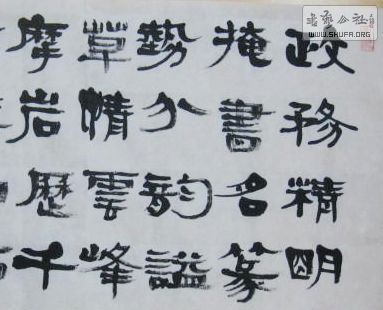 政務精明
掩書名篆
勢分韵謚
草情雲峰
摩岩歷千
書藝公社
WWW.SHUFA.ORG